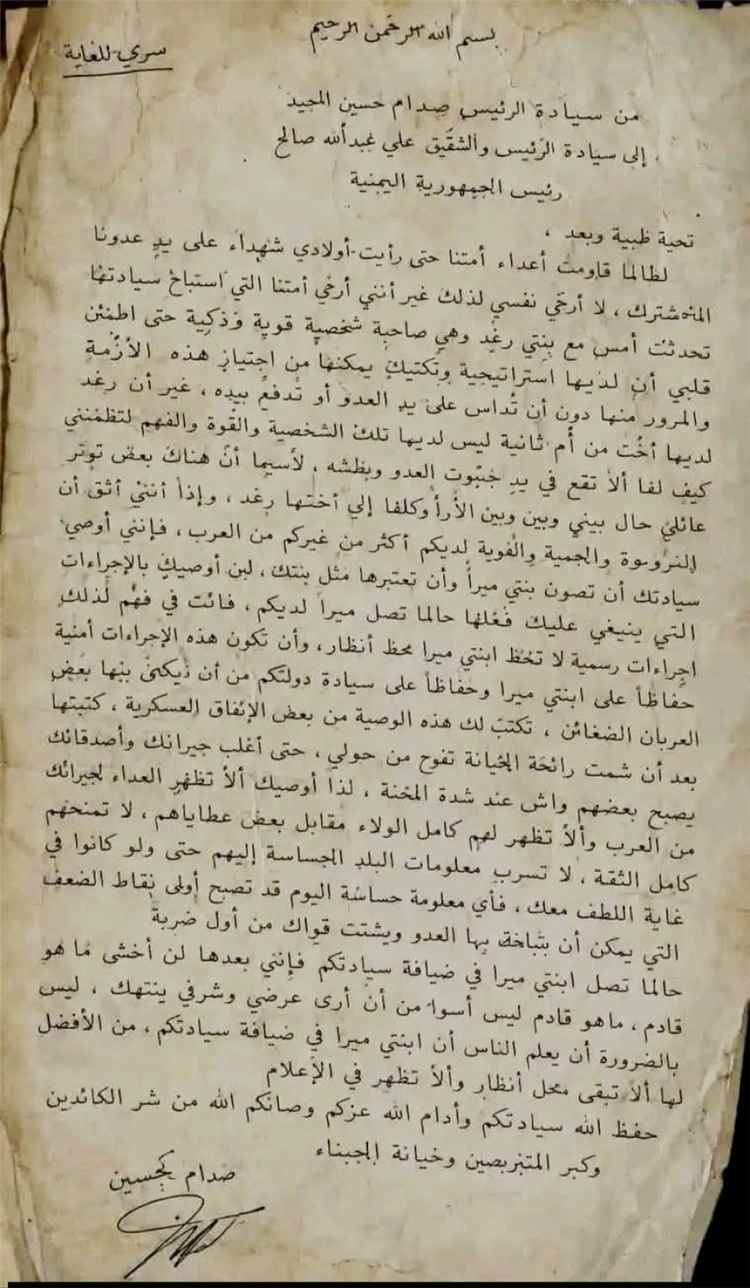 بسم الله الرحمن الرحيم
سري للغاية
من سيادة الرئيس صدام حسين المجيد
إلى سيادة الرئيس والشقيق علي عبدالله صالح
رئيس الجمهورية اليمنية
تحية طبية وبعد ،
لطالما قاومت أعداء أمتنا حتى رأيت أولادي شهداء على يد عدونا
المشترك ، لا أرثي نفسي لذلك غير أنني أرثي أمتنا التي استباح سيادتها
تحدثت أمس مع بنتي رغد وهي صاحبة شخصية قوية وذكية حتى اطمئن
قلبي أن لديها استراتيجية وتكتيك يمكنها من اجتياز هذه الأزمة
والمرور منها دون أن تداس على يد العدو أو تدفع بيده ، غير أن رغد
لديها أخت من أم ثانية ليس لديها تلك الشخصية والقوة والفهم لتطمنني
كيف لها ألا تقع في يد العدو وبطشه ، لأسيما أن هناك بعض توتر
عائلي حال بيني وبين وبين إلى أختها رغد ، وإذا أنني أثق أن
لديكم أكثر من غيركم من العرب ، فإنني أوصي
سيادتك أن تصون بنتي ميرا وأن تعتبرها مثل بنتك ، لن أوصيك بالإجراءات
التي ينبغي عليك فعلها حالما تصل ميرا لديكم ، فائت في فهم لذلك
اجراءات رسمية لا تخط ابنتي ميرا محظ أنظار ، وأن تكون هذه الإجراءات أمنية
حفاظاً على ابنتي ميرا وحفاظاً على سيادة دولتكم من أن بها بعض
العربان الضغائن ، تكتب لك هذه الوصية من بعض الإنفاق العسكرية ، كتبتها
بعد أن شمت رائحة الخيانة تفوح من حولي ، حتى أغلب جيرانك وأصدقائك
يصبح بعضهم واش عند شدة المحنة ، لذا أوصيك ألا تظهر العداء لجيرانك
من العرب وألا تظهر لهم كامل الولاء مقابل بعض عطاياهم ، لا تمنحهم
كامل الثقة ، لا تسرب معلومات البلد الحساسة إليهم حتى ولو كانوا في
غاية اللطف معك ، فأي معلومة حساسة اليوم قد تصبح أولى نقاط الضعف
التي يمكن أن بها العدو ويشتت قواك من أول ضربة
حالما تصل ابنتي ميرا في ضيافة سيادتكم فإنني بعدها لن أخشى ما هو
قادم ، ماهو قادم ليس أسوا من أن أرى عرضي وشرفي ينتهك ، ليس
بالضرورة أن يعلم الناس أن ابنتي ميرا في ضيافة سيادتكم ، من الأفضل
لها ألا تبقى محل أنظار وألا تظهر في الإعلام
حفظ الله سيادتكم وأدام الله عزكم وصانكم الله من شر الكائدين
وكبر المتربصين وخيانة الجبناء
صدام حسين